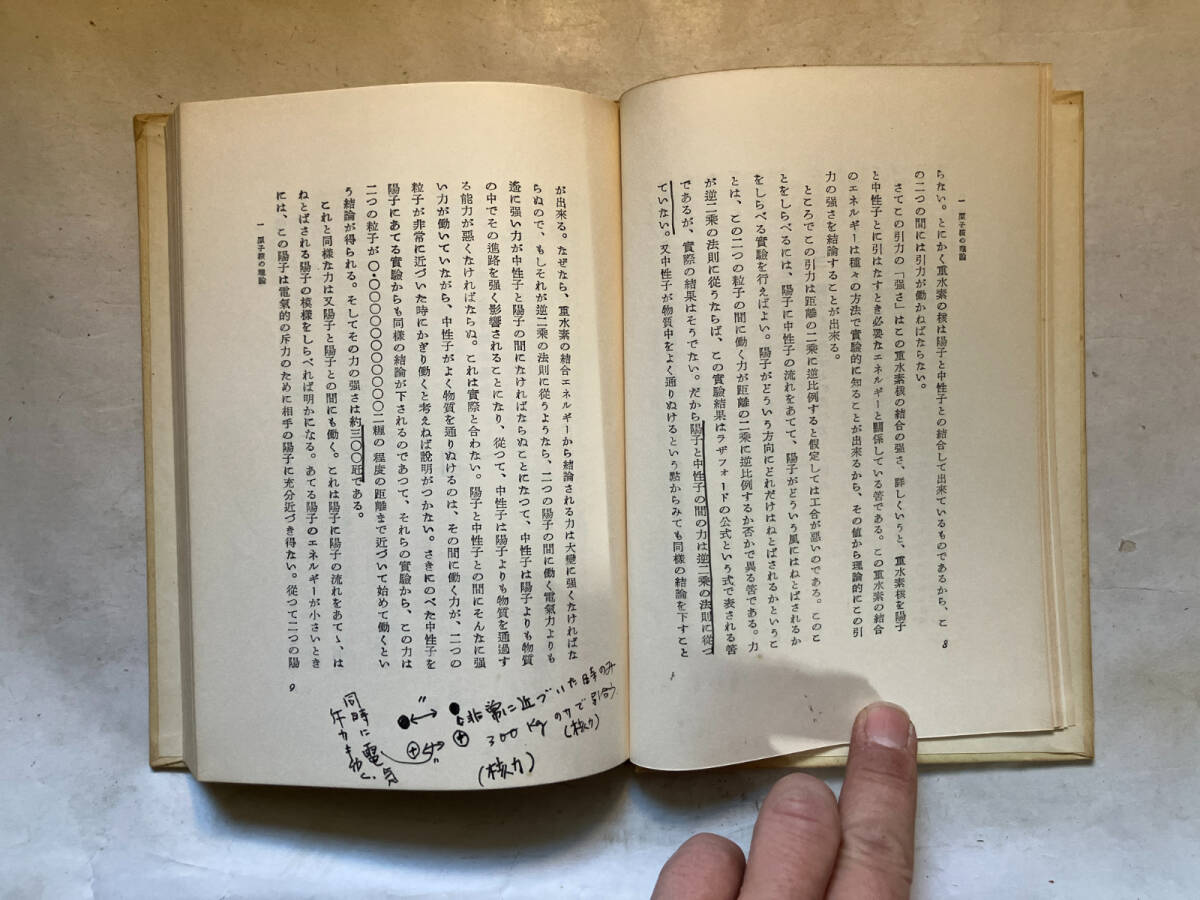 一 原子核の理論
らない。とにかく重水素の核は陽子と中性子との結合して出来ているものであるから、こ
の二つの間には引力が働かねばならない。
さてこの引力の「强さ」はこの重水素核の結合の强さ、詳しくいうと、重水素核を陽子
と中性子とに引はなすとき必要なエネルギーと關係している筈である。この重水素の結合
のエネルギーは種々の方法で實驗的に知ることが出來るから、その値から理論的にこの引
力の强さを結論することが出來る。
ところでこの引力は距離の二乗に逆比例すると假定しては工合が惡いのである。このこ
とをしらべるには、陽子に中性子の流れをあてて、陽子がどういう風にはねとばされるか
をしらべる實驗を行えばよい。陽子がどういう方向にどれだけはねとばされるかというこ
とは、この二つの粒子の間に働く力が距離の二乗に逆比例するか否かで異る筈である。力
が逆二乗の法則に從うならば、この實驗結果はラザフォードの公式という式で表される筈
であるが、實際の結果はそうでない。だから陽子と中性子の間の力は逆二乗の法則に從つ
ていない。又中性子が物質中をよく通りぬけるという點からみても同樣の結論を下すこと
8
が出來る。なぜなら、重水素の結合エネルギーから結論される力は大變に强くなければな
らぬので、もしそれが逆二乗の法則に從うようなら、二つの陽子の間に働く電氣力よりも
遙に强い力が中性子と陽子の間になければならぬことになつて、中性子は陽子よりも物質
の中でその進路を强く影響されることになり、從つて、中性子は陽子よりも物質を通過す
る能力が惡くなければならぬ。これは實際と合わない。陽子と中性子との間にそんなに强
い力が働いていながら、中性子がよく物質を通りぬけるのは、その間に働く力が、二つの
粒子が非常に近づいた時にかぎり働くと考えねば說明がつかない。さきにのべた中性子を
陽子にあてる實驗からも同樣の結論が下されるのであつて、それらの實驗から、この力は
二つの粒子が〇・〇〇〇〇〇〇〇〇〇〇〇〇二糎の程度の距離まで近づいて始めて働くとい
う結論が得られる。そしてその力の强さは約三〇〇瓩である。
これと同樣な力は又陽子と陽子との間にも働く。これは陽子に陽子の流れをあて、は
ねとばされる陽子の模樣をしらべれば明かになる。あてる陽子のエネルギーが小さいとき
には、この陽子は電氣的の斥力のために相手の陽子に充分近づき得ない。從つて二つの陽
一 原子核の理論
9
非常に近づいた時のみ
300kgの力で引合う
(核力)
(核力)
同時に電気
斥力も働く